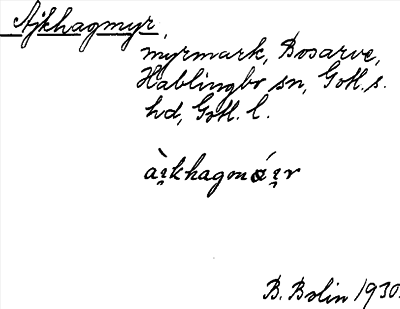 Ajkhagmyr,
myrmark, Bosarve,
Hablingbo sn, Gotl. s.
hd, Gotl. l.
àı̯khagmǿı̯r
B. Bolin 1930.